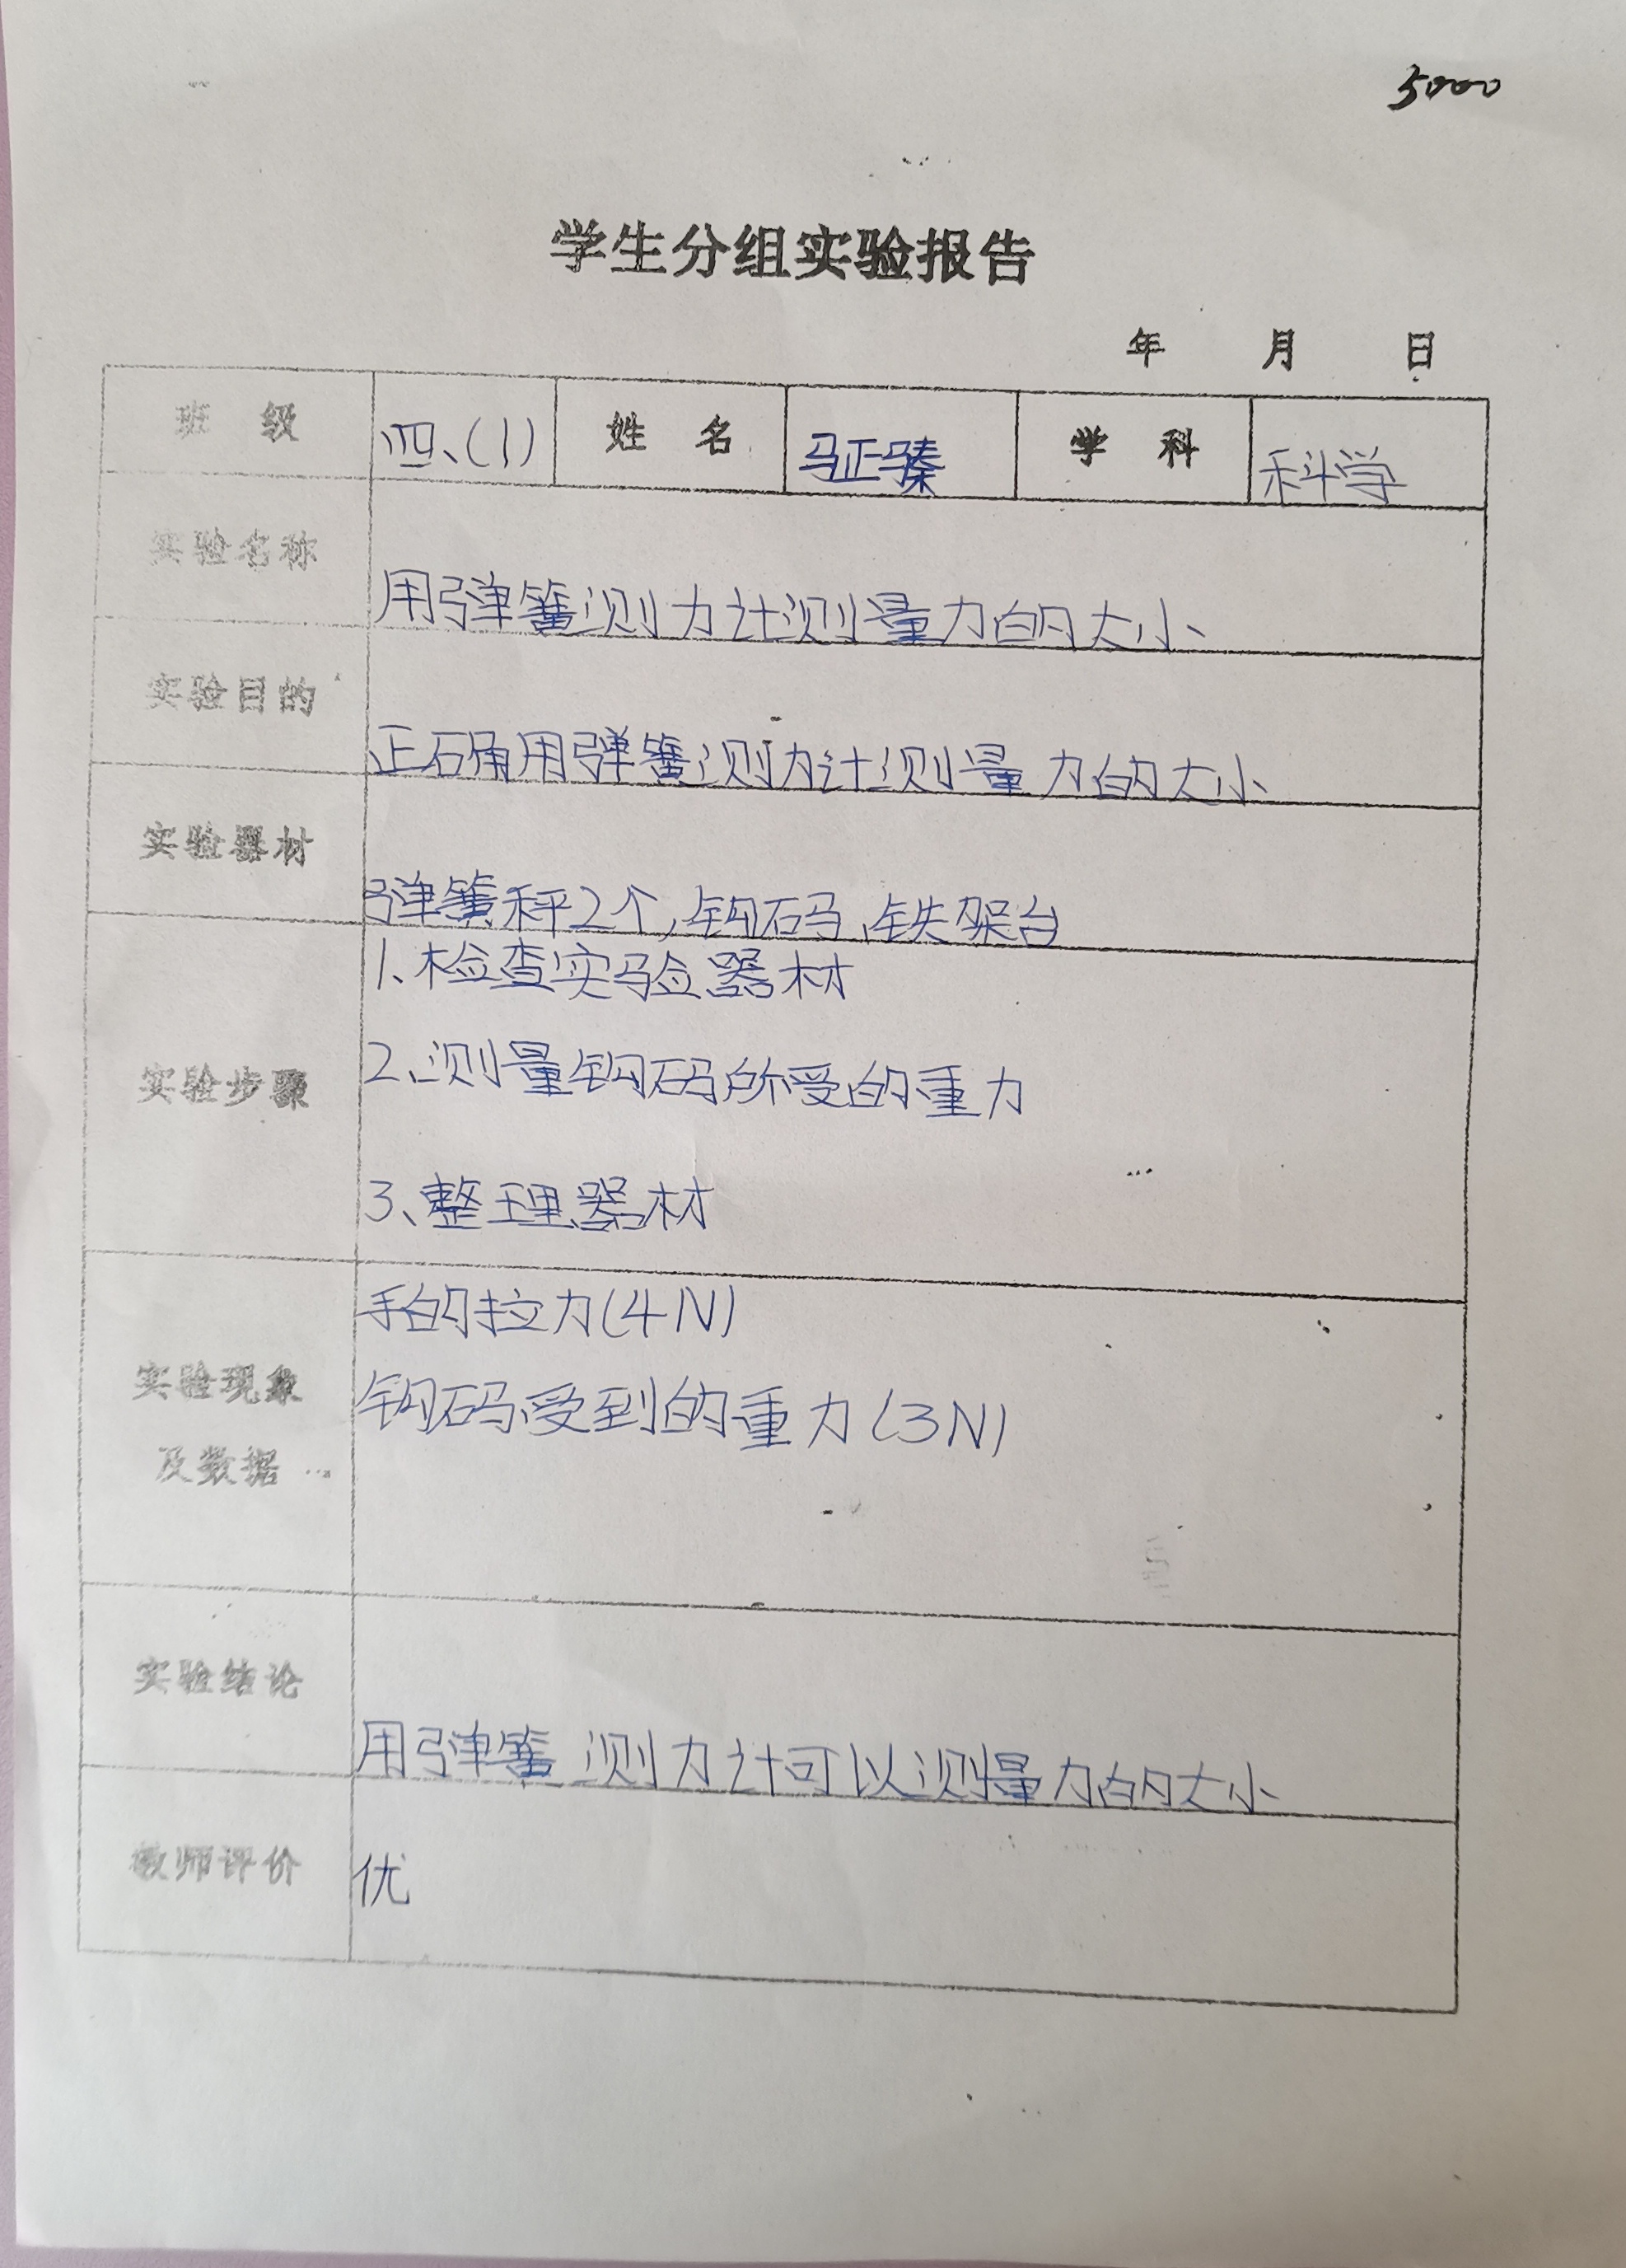 5000
学生分组实验报告
年 月 日
班 级 四、(1) 姓 名 马正骧 学 科 科学
实验名称 用弹簧测力计测量力的大小
实验目的 正确用弹簧测力计测量力的大小
实验器材 弹簧秤2个,钩码、铁架台
实验步骤
1、检查实验器材
2、测量钩码所受的重力
3、整理器材
实验现象
及数据
手的拉力(4N)
钩码受到的重力(3N)
实验结论 用弹簧测力计可以测量力的大小
教师评价 优